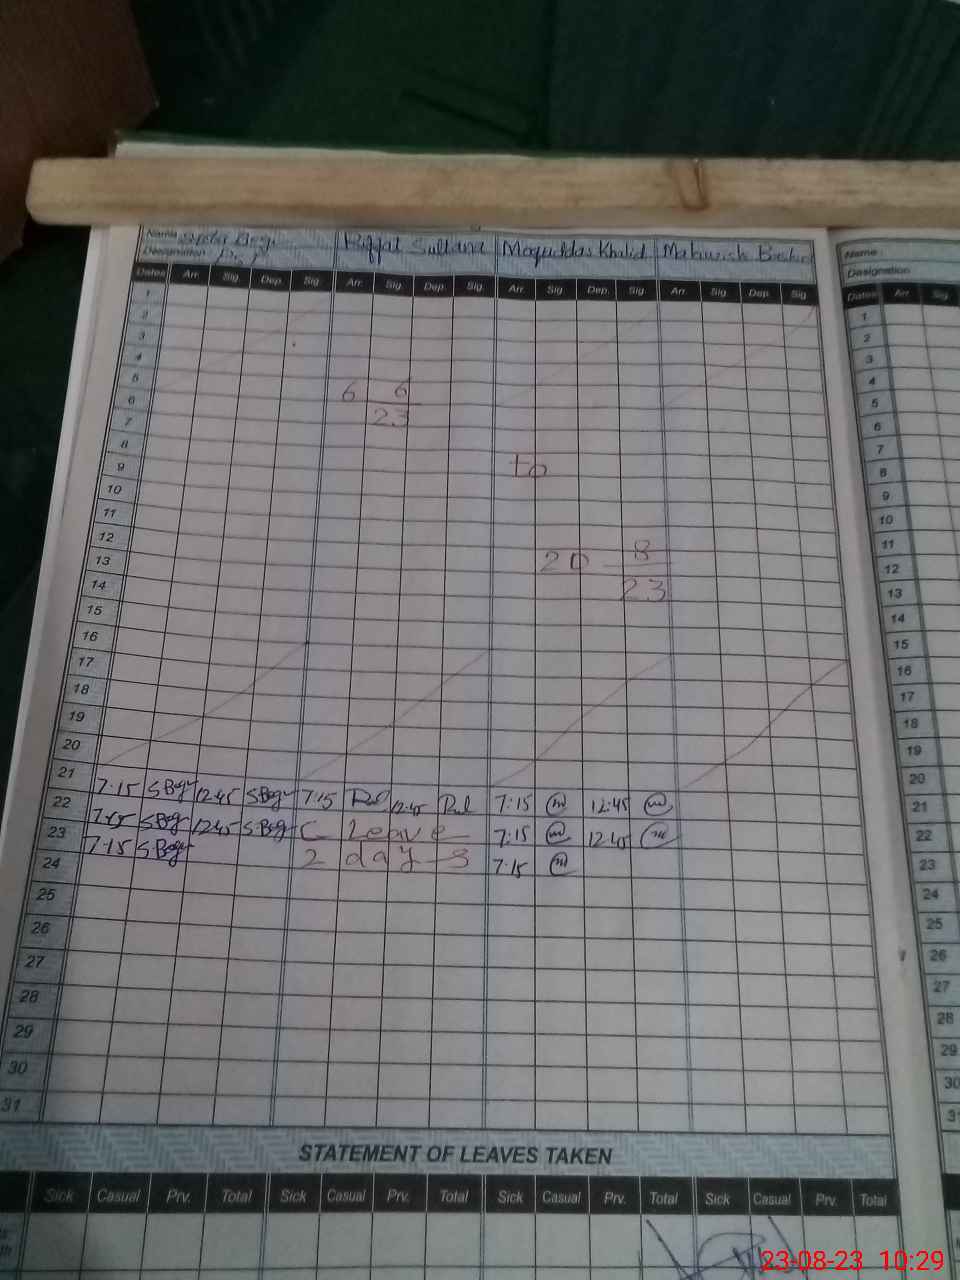 Name
Designation
Riffat Sultana Moquddas Khalid Mahwish Bashir
Name
Designation
Dates Arr. Sig. Dep. Sig. Arr. Sig. Dep. Sig. Arr. Sig. Dep. Sig. Arr. Sig. Dep. Sig.
Dates Arr. Sig.
1
2
3
4
5
6 6 6
7 23
8
9 to
10
11
12
13 20 8
14 23
15
16
17
18
19
20
21
22 7:15 S Beg 12:45 S Beg 7:15 12:45 7:15 m 12:45 m
23 7:15 S Beg 12:45 S Beg C Leave 7:15 m 12:45 m
24 7:15 S Beg 2 days 7:15 m
25
26
27
28
29
30
31
1
2
3
4
5
6
7
8
9
10
11
12
13
14
15
16
17
18
19
20
21
22
23
24
25
26
27
28
29
30
STATEMENT OF LEAVES TAKEN
Sick Casual Prv. Total Sick Casual Prv. Total Sick Casual Prv. Total Sick Casual Prv. Total
23-08-23 10:29